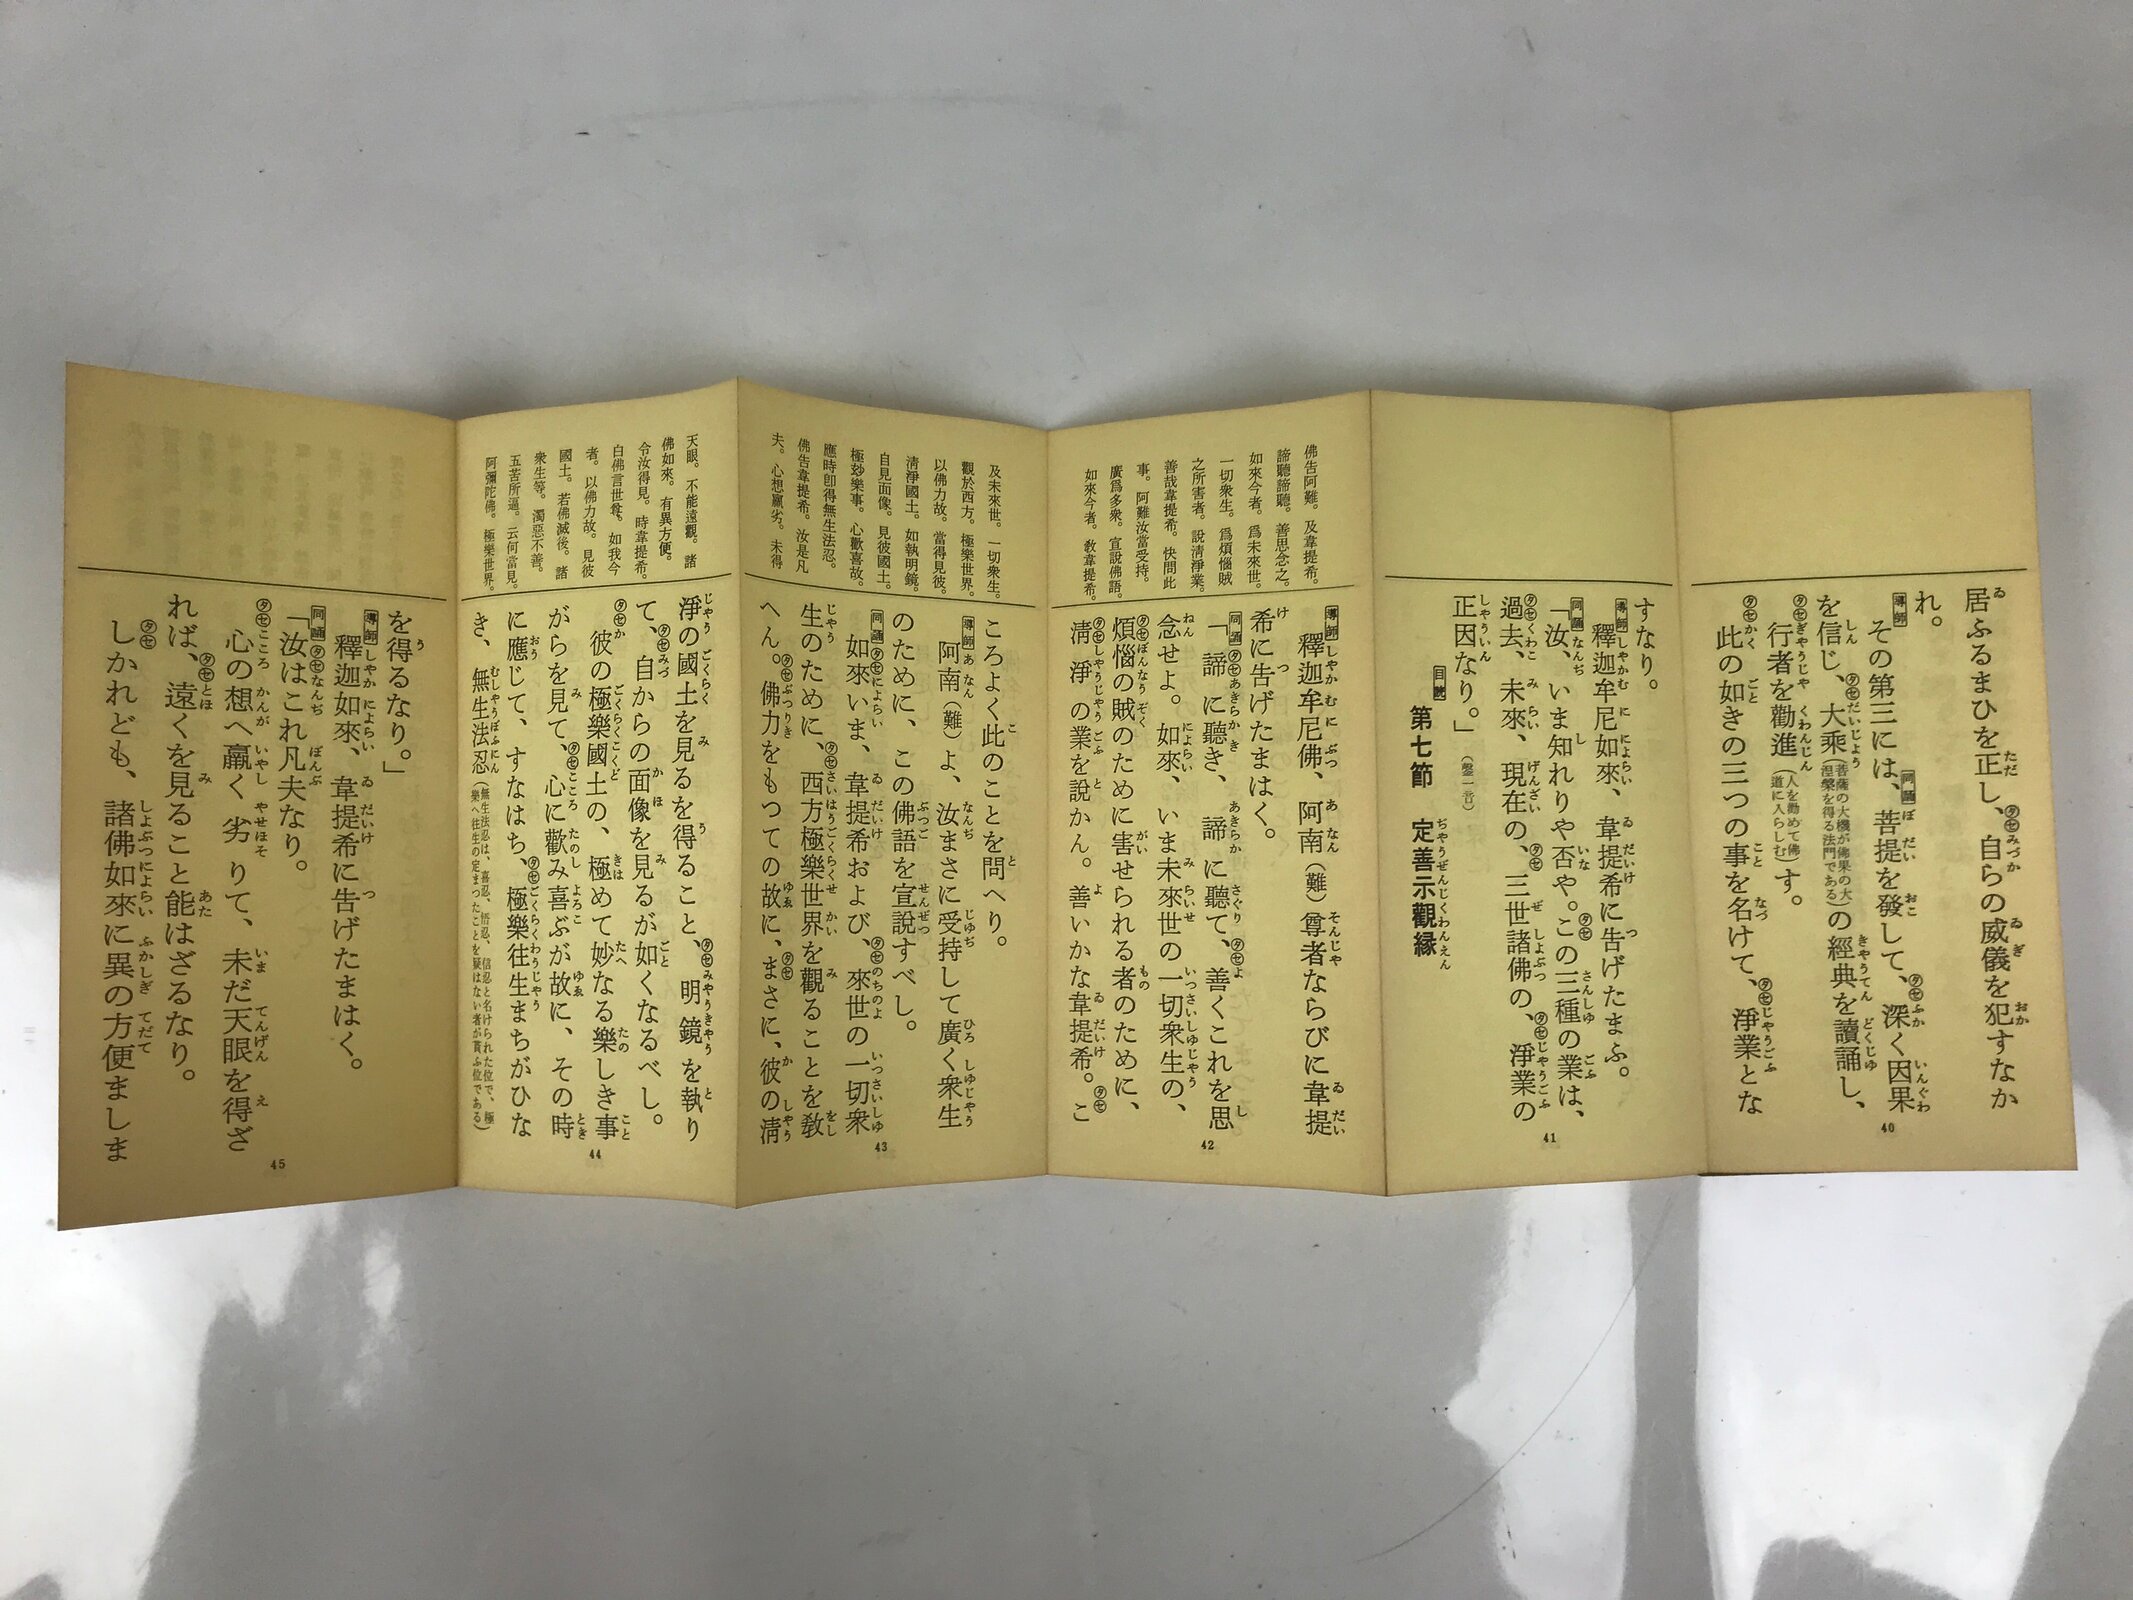 居ふるまひを正し、自らの威儀を犯すなか
れ。
その第三には、菩提を發して、深く因果
を信じ、大乘(菩薩の大機が佛果の大涅槃を得る法門である)の經典を讀誦し、
行者を勸進(人を勸めて佛道に入らしむ)す。
此の如きの三つの事を名けて、淨業とな
40
すなり。
導師 釋迦牟尼如來、韋提希に告げたまふ。
同誦「汝、いま知れりや否や。この三種の業は、
過去、未來、現在の、三世諸佛の、淨業の
正因なり。」(磬二音)
目読 第七節 定善示觀縁
41
佛告阿難。及韋提希。
諦聽諦聽。善思念之。
如來今者。爲未來世。
一切衆生。爲煩惱賊
之所害者。説清淨業。
善哉韋提希。快問此
事。阿難汝當受持。
廣爲多衆。宣説佛語。
如來今者。敎韋提希。
導師 釋迦牟尼佛、阿南(難)尊者ならびに韋提
希に告げたまはく。
同誦「諦に聽き、諦に聽て、善くこれを思
念せよ。如來、いま未來世の一切衆生の、
煩惱の賊のために害せられる者のために、
清淨の業を説かん。善いかな韋提希。こ
42
及未來世。一切衆生。
觀於西方。極樂世界。
以佛力故。當得見彼。
清淨國土。如執明鏡。
自見面像。見彼國土。
極妙樂事。心歡喜故。
應時卽得無生法忍。
佛告韋提希。汝是凡
夫。心想羸劣。未得
ころよく此のことを問へり。
導師 阿南(難)よ、汝まさに受持して廣く衆生
のために、この佛語を宣説すべし。
同誦 如來いま、韋提希および、來世の一切衆
生のために、西方極樂世界を觀ることを敎
へん。佛力をもつての故に、まさに、彼の清
43
天眼。不能遠觀。諸
佛如來。有異方便。
令汝得見。時韋提希。
白佛言世尊。如我今
者。以佛力故。見彼
國土。若佛滅後。諸
衆生等。濁惡不善。
五苦所逼。云何當見。
阿彌陀佛。極樂世界。
淨の國土を見るを得ること、明鏡を執り
て、自からの面像を見るが如くなるべし。
彼の極樂國土の、極めて妙なる樂しき事
がらを見て、心に歡み喜ぶが故に、その時
に應じて、すなはち、極樂往生まちがひな
き、無生法忍(無生法忍は、喜忍、悟忍、信忍と名けられた位で、極樂へ往生の定まつたことを疑はない者が貰ふ位である)
44
を得るなり。」
導師 釋迦如來、韋提希に告げたまはく。
同誦「汝はこれ凡夫なり。
心の想へ羸く劣りて、未だ天眼を得ざ
れば、遠くを見ること能はざるなり。
しかれども、諸佛如來に異の方便ましま
45